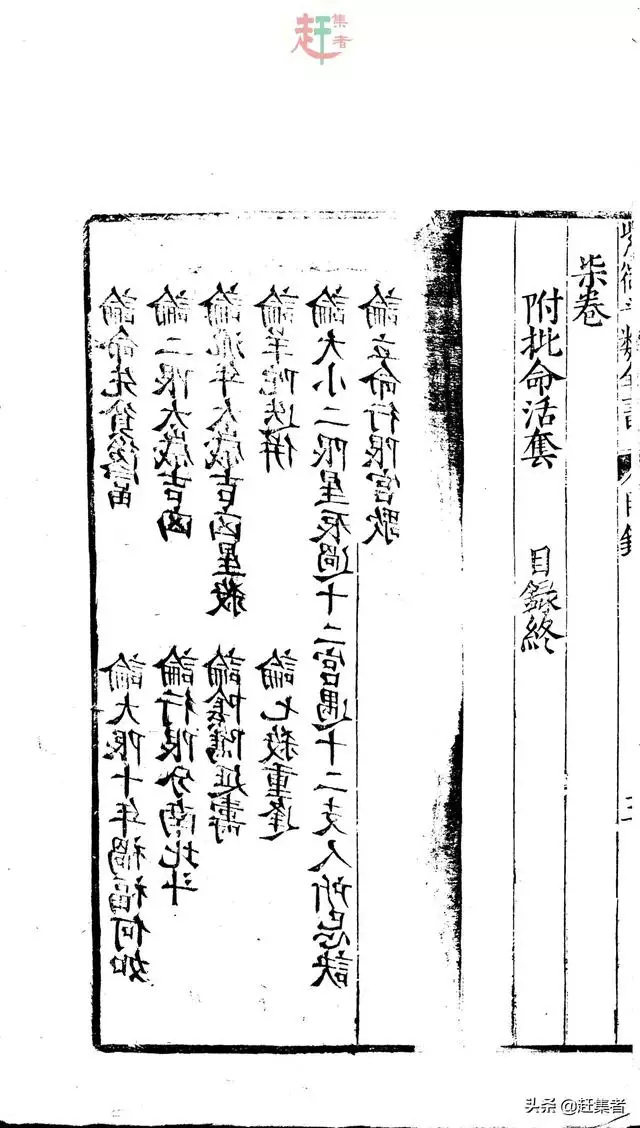 紫微斗數全書 目錄 三
柒卷
附批命活套 目録終
論命先貧後富 論大限十年禍福何如
論二限太歲吉凶 論行限分南北斗
論流年太歲吉凶星殺 論陰隲延壽
論羊陀迭併 論七殺重逢
論大小二限星辰過十二宮遇十二支人所忌訣
論立命行限宮歌
赶集者
头条 @赶集者